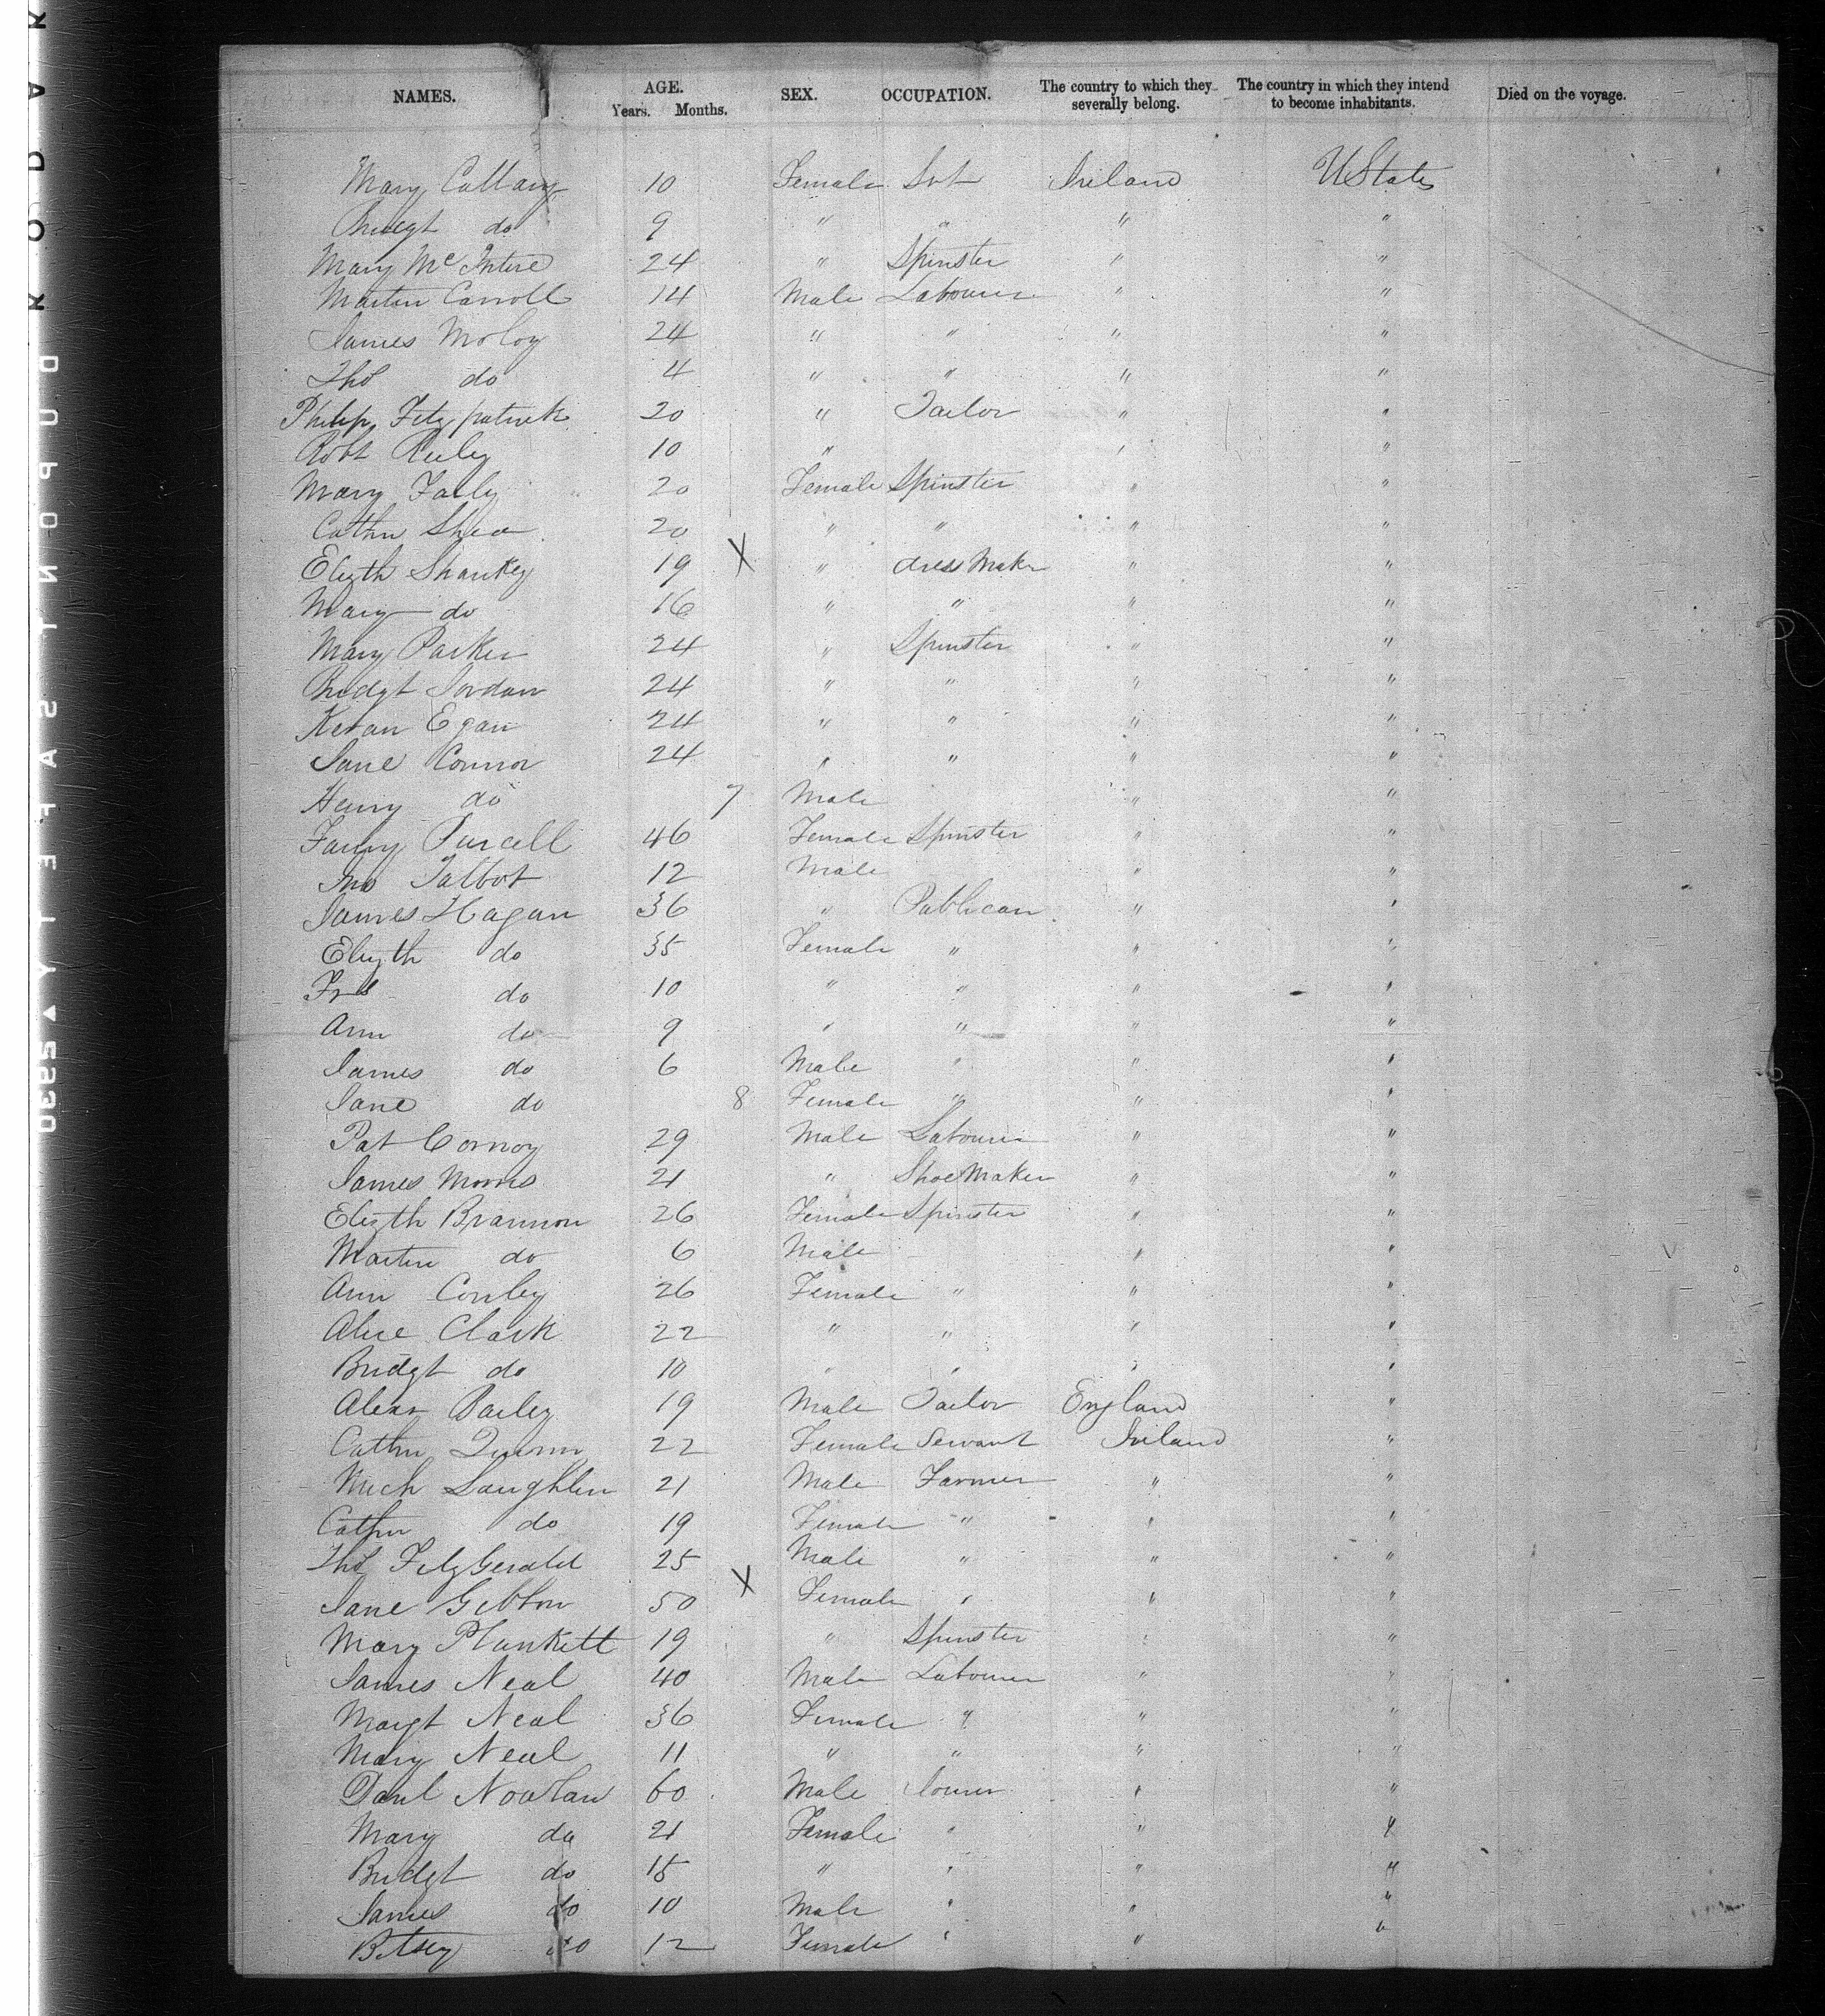 NAMES. AGE. Years. Months. SEX. OCCUPATION. The country to which they severally belong. The country in which they intend to become inhabitants. Died on the voyage.
Mary 10 Female Svt Ireland U States
do 9 " " " "
Mary McIntire 24 " Spinster " "
Martin Carroll 14 Male Labourer " "
James Moloy 24 " " " "
Thos do 4 " " " "
Philip Fitzpatrick 20 " Tailor " "
Robt Rieley 10 " " "
Mary Farley 20 Female Spinster " "
Cathn Shea 20 " " " "
Elizth Shankey 19 X " dress Maker " "
Mary do 16 " " " "
Mary Parker 24 " Spinster " "
Bridgt Jordan 24 " " " "
Keran Egan 24 " " " "
Jane Connor 24 " " " "
Henry do 7 Male " "
Fanny Purcell 46 Female Spinster " "
Jno Talbot 12 Male " "
James Hagan 36 " Publican " "
Elizth do 35 Female " " "
Frs do 10 " " " "
Ann do 9 " " " "
James do 6 Male " " "
Jane do 8 Female " " "
Pat Conroy 29 Male Labourer " "
James Morris 21 " Shoe Maker " "
Elizth Brannon 26 Female Spinster " "
Martin do 6 Male " "
Ann Conley 26 Female " " "
Alice Clark 22 " " " "
Bridgt do 10 " " " "
Alexr Bailey 19 Male Tailor England "
Cathn Quinn 22 Female Servant Ireland "
Mich Laughlin 21 Male Farmer " "
Cathn do 19 Female " " "
Thos FitzGerald 25 Male " " "
Jane Gibton 50 X Female " " "
Mary Plunkett 19 " Spinster " "
James Neal 40 Male Labourer " "
Margt Neal 36 Female " " "
Mary Neal 11 " " " "
Danl Nowlan 60 Male " "
Mary do 21 Female " " "
Bridgt do 15 " " " "
James do 10 Male " " "
Betsey do 12 Female " " "